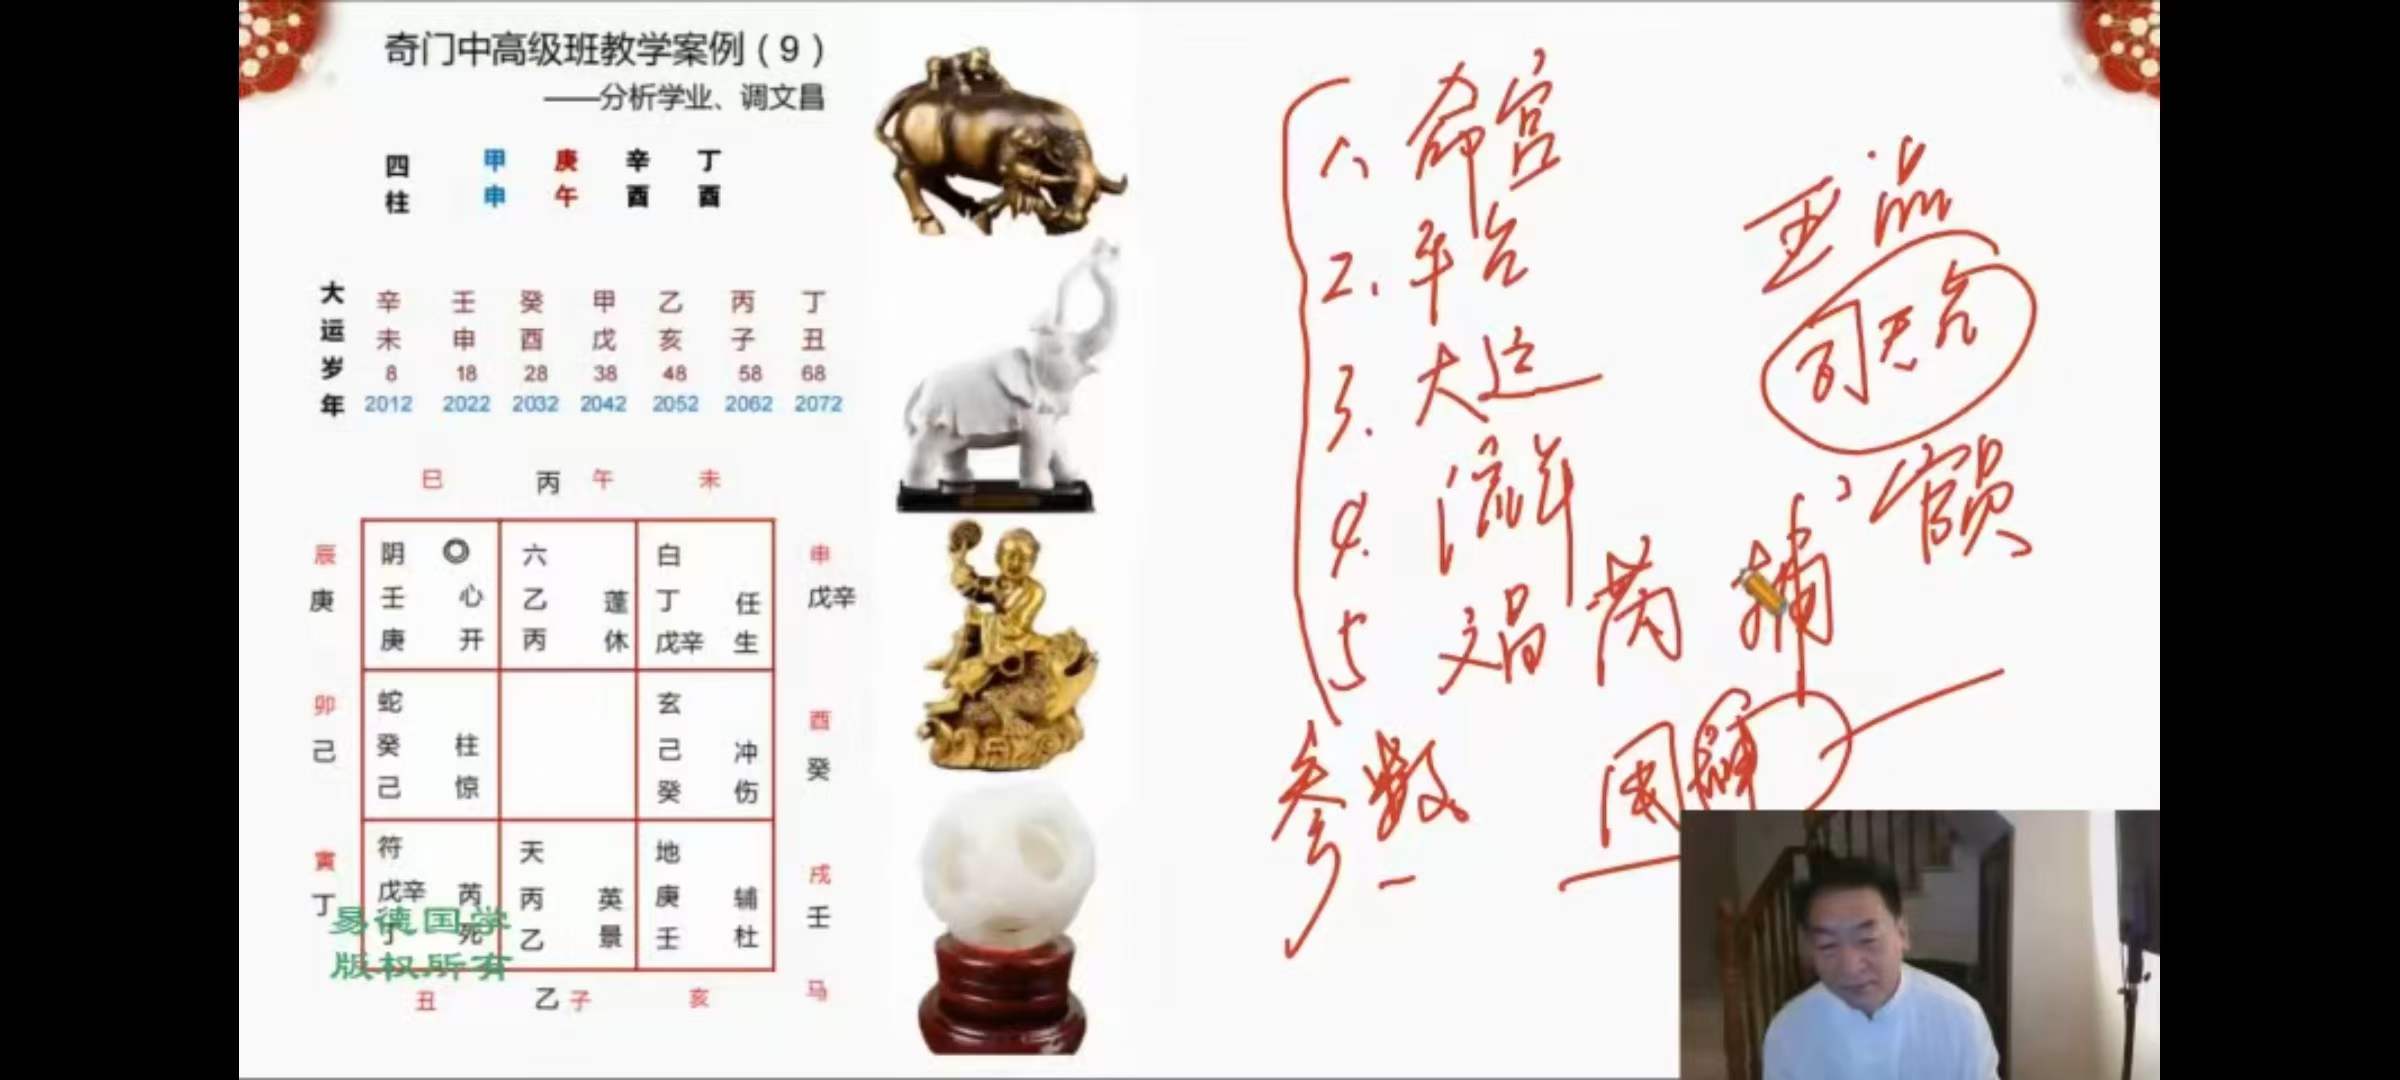 奇门中高级班教学案例（9）
——分析学业、调文昌
四 甲 庚 辛 丁
柱 申 午 酉 酉
大 辛 壬 癸 甲 乙 丙 丁
运 未 申 酉 戌 亥 子 丑
岁 8 18 28 38 48 58 68
年 2012 2022 2032 2042 2052 2062 2072
巳 丙 午 未
辰 阴 六 白 申
庚 壬 心 乙 蓬 丁 任 戊辛
庚 开 丙 休 戊辛 生
卯 蛇 玄 酉
己 癸 柱 己 冲 癸
己 惊 癸 伤
寅 符 天 地 戌
丁 戊辛 芮 丙 英 庚 辅 壬
丁 死 乙 景 壬 杜
丑 乙 子 亥 马
易德国学
版权所有
1、命宫
2、年台
3、大运
4、流年
5 文昌 芮 辅
参数